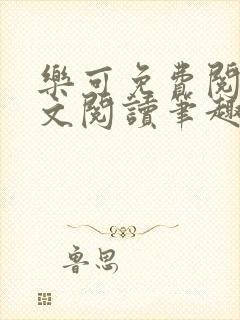 樂可免費閱
文閱讀筆趣
魯思